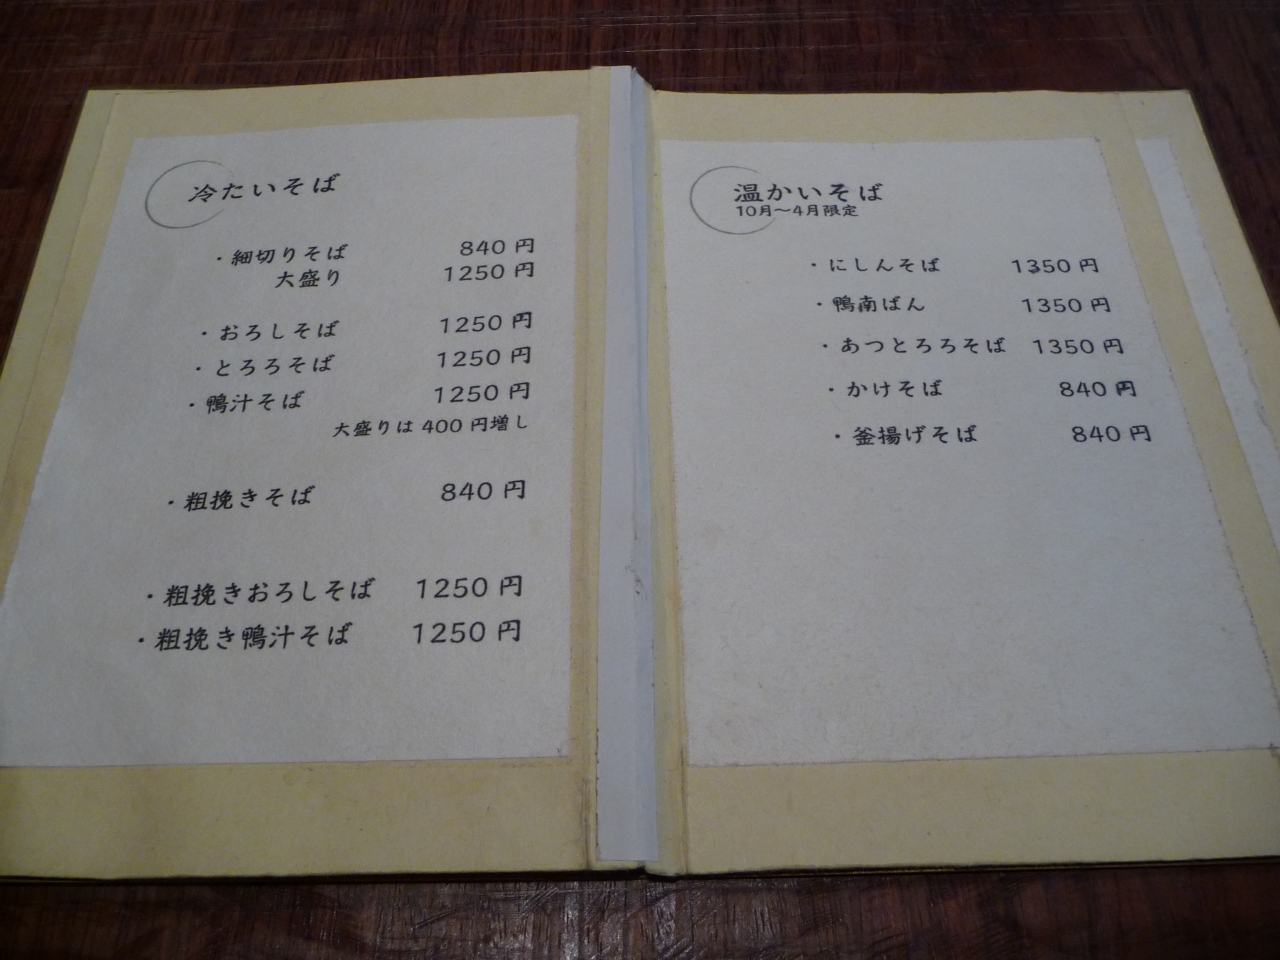 冷たいそば
・細切りそば 840円
大盛り 1250円
・おろしそば 1250円
・とろろそば 1250円
・鴨汁そば 1250円
大盛りは400円増し
・粗挽きそば 840円
・粗挽きおろしそば 1250円
・粗挽き鴨汁そば 1250円
温かいそば
10月～4月限定
・にしんそば 1350円
・鴨南ばん 1350円
・あつとろろそば 1350円
・かけそば 840円
・釜揚げそば 840円